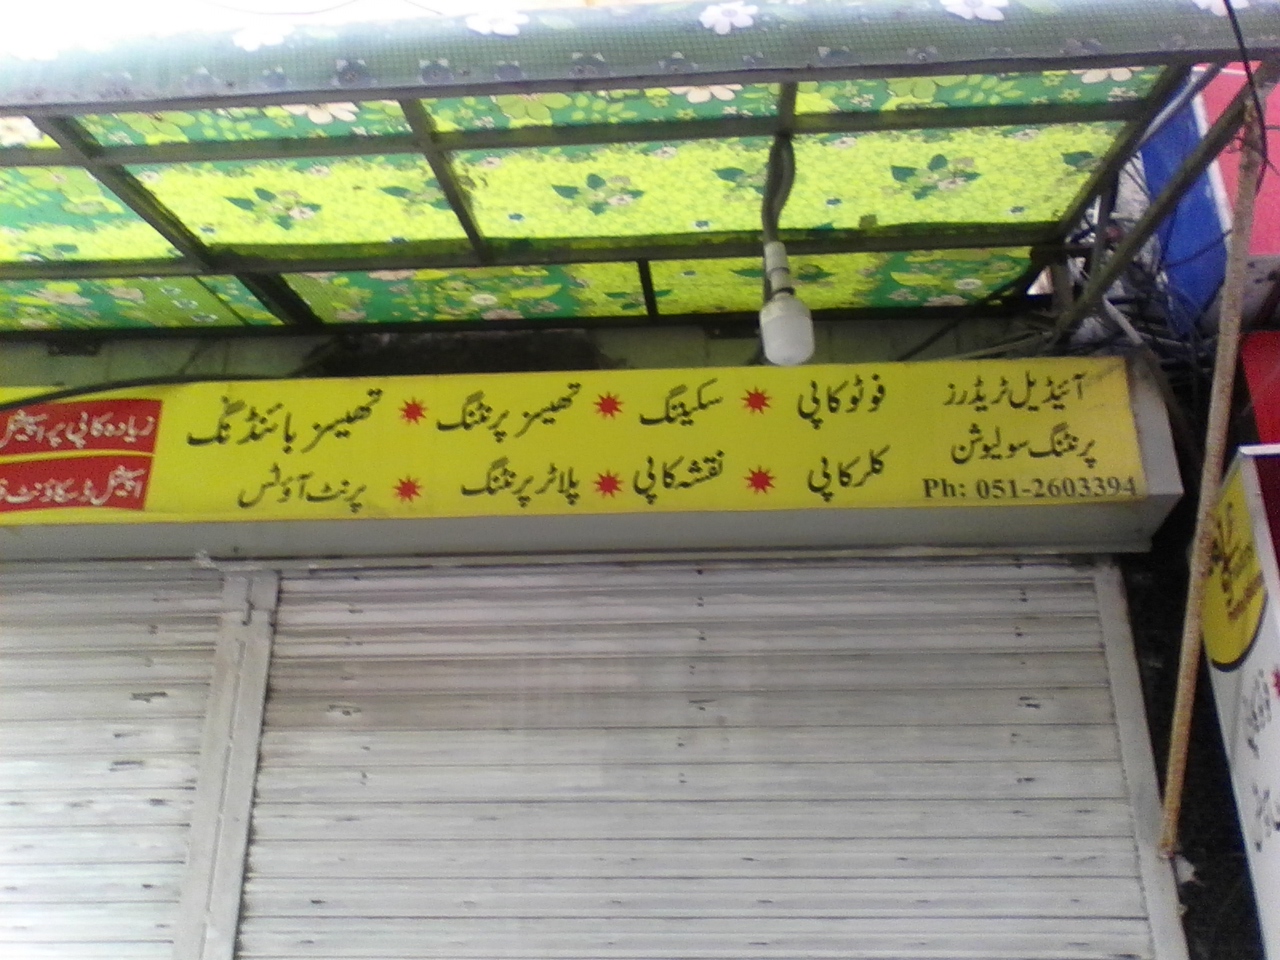 آئیڈیل ٹریڈرز
پرنٹنگ سولیوشن
Ph: 051-2603394
فوٹو کاپی سکیننگ تھیسز پرنٹنگ تھیسز بائنڈنگ
کلر کاپی نقشہ کاپی پلاٹر پرنٹنگ پرنٹ آؤٹس
زیادہ کاپی پر اسپیشل
اسپیشل ڈسکاؤنٹ